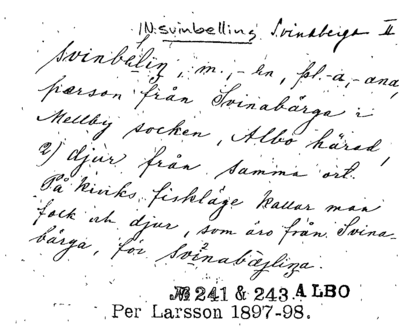 IN: svinbelling Svinaberga II
svinbelin, m., -en, pl. -a, -ana,
pærson från Svinabårga i
Mellby socken, Albo härad,
2) djur från samma ort.
På Kiviks fiskläge kallar man
fock och djur, som äro från Svina-
bårga, för svinabæjlina.
№ 241 & 243 ALBO
Per Larsson 1897-98.